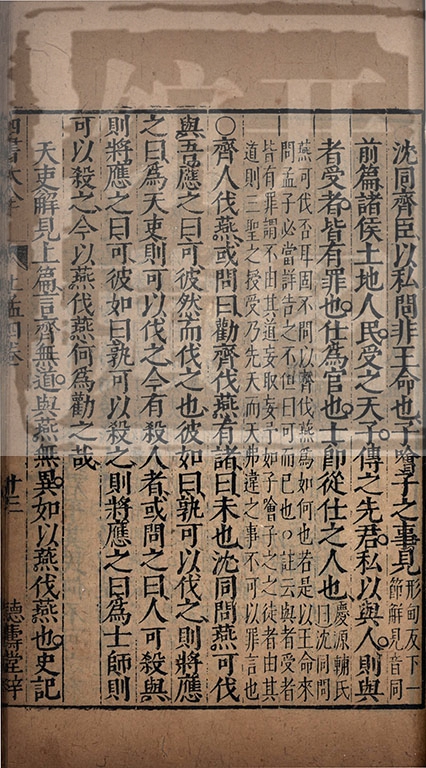 沈同齊臣以私問非王命也子噲子之事見形甸反下一
節解見音同
前篇諸侯土地人民受之天子傳之先君私以與人則與
者受者皆有罪也仕為官也士即從仕之人也慶源輔氏
曰沈同問
燕可伐否耳固不問以齊伐燕為如何也若是以王命來
問孟子必當詳告之不但曰可而已也○註云與者受者
皆有罪謂不由其道妄取妄予如子噲子之之徒者由其
道則三聖之授受乃先天而天弗違之事不可以罪言也
○齊人伐燕或問曰勸齊伐燕有諸曰未也沈同問燕可伐
與吾應之曰可彼然而伐之也彼如曰孰可以伐之則將應
之曰為天吏則可以伐之今有殺人者或問之曰人可殺與
則將應之曰可彼如曰孰可以殺之則將應之曰為士師則
可以殺之今以燕伐燕何為勸之哉
天吏解見上篇言齊無道與燕無異如以燕伐燕也史記
四書大全 上孟四卷 廿三 德壽堂梓